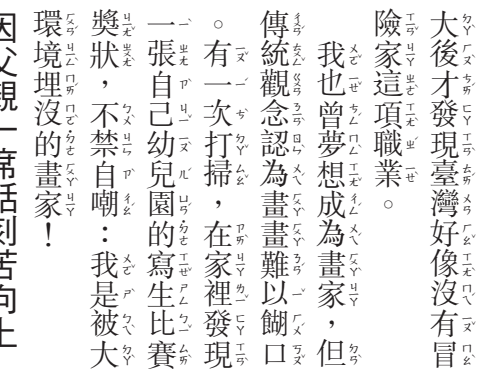 大後才發現臺灣好像沒有冒
險家這項職業。
我也曾夢想成為畫家，但
傳統觀念認為畫畫難以餬口
。有一次打掃，在家裡發現
一張自己幼兒園的寫生比賽
獎狀，不禁自嘲：我是被大
環境埋沒的畫家！
因父親一席話刻苦向上